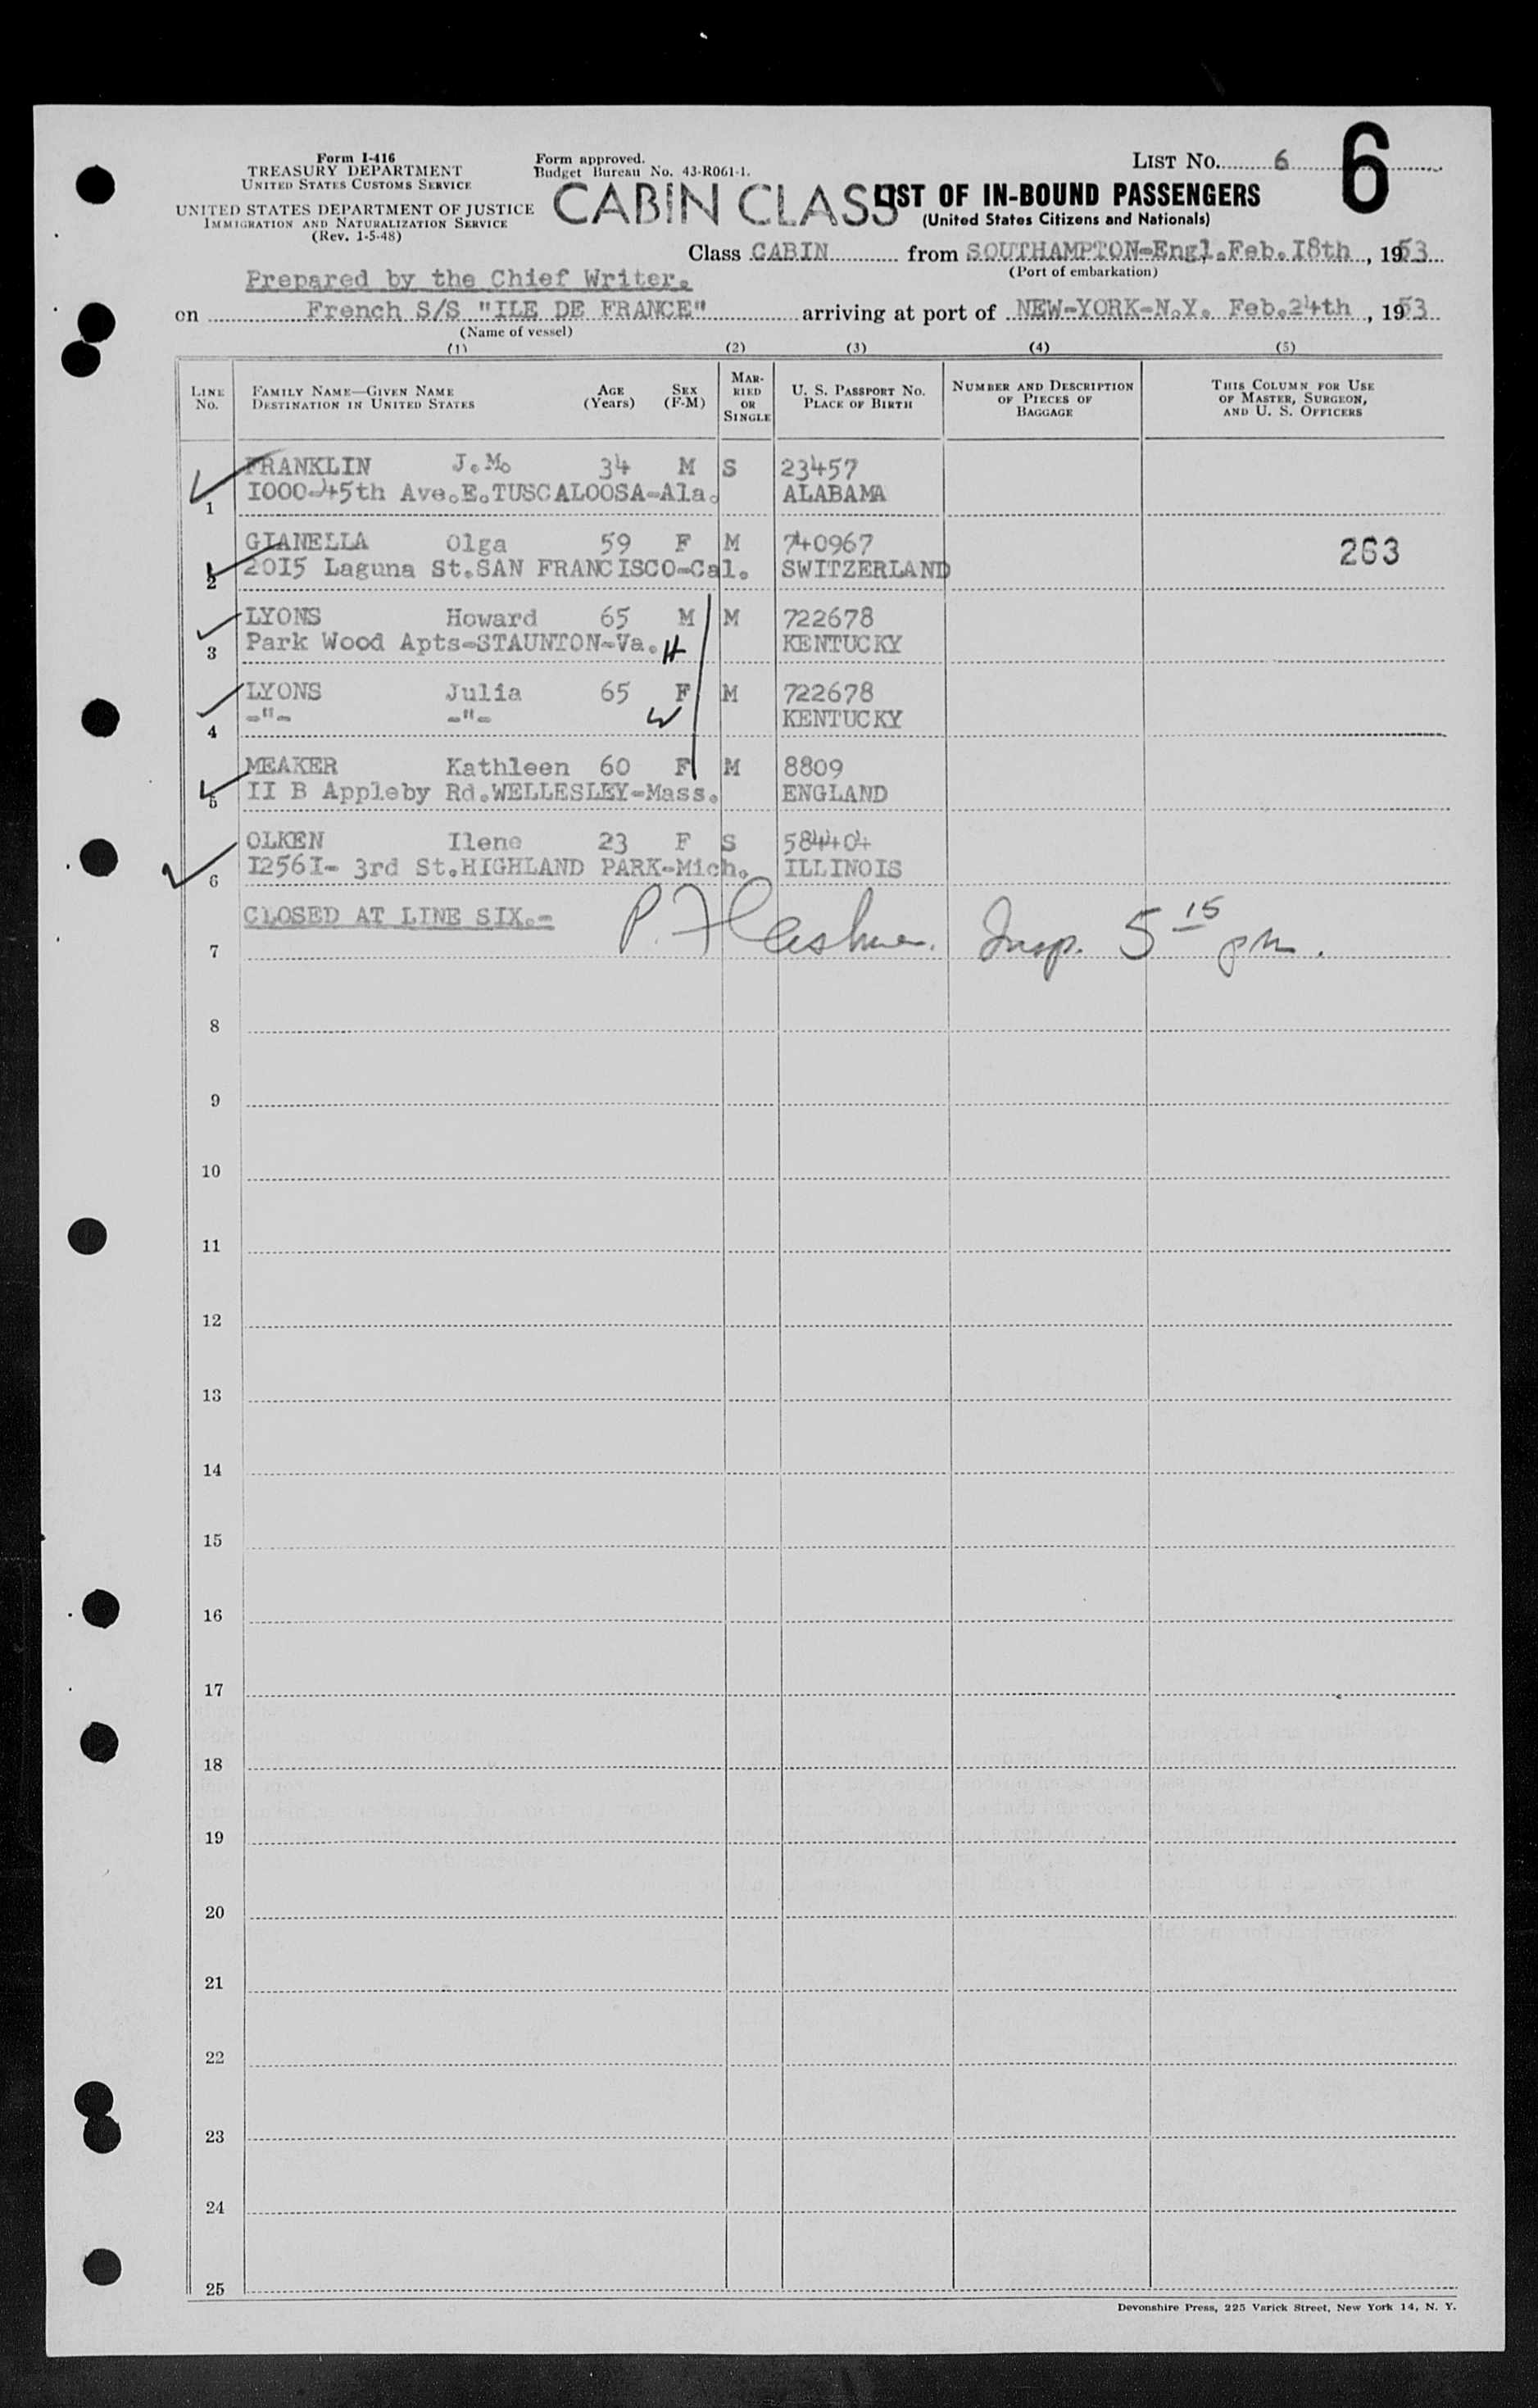 Form I-416
TREASURY DEPARTMENT
UNITED STATES CUSTOMS SERVICE
UNITED STATES DEPARTMENT OF JUSTICE
IMMIGRATION AND NATURALIZATION SERVICE
(Rev. 1-5-48)
Form approved.
Budget Bureau No. 43-R061-1.
LIST No. 6
6
CABIN CLASS
LIST OF IN-BOUND PASSENGERS
(United States Citizens and Nationals)
Class CABIN from SOUTHAMPTON-Engl.Feb.I8th, 1953
(Port of embarkation)
Prepared by the Chief Writer.
on French S/S "ILE DE FRANCE" arriving at port of NEW-YORK-N.Y. Feb.24th, 1953
(Name of vessel)
(1) (2) (3) (4) (5)
LINE No.
FAMILY NAME—GIVEN NAME AGE SEX
DESTINATION IN UNITED STATES (Years) (F-M)
MARRIED OR SINGLE
U. S. PASSPORT No.
PLACE OF BIRTH
NUMBER AND DESCRIPTION OF PIECES OF BAGGAGE
THIS COLUMN FOR USE OF MASTER, SURGEON, AND U. S. OFFICERS
FRANKLIN J.M. 34 M S 23457
1 I000-45th Ave.E.TUSCALOOSA-Ala. ALABAMA
GIANELLA Olga 59 F M 740967 263
2 20I5 Laguna St.SAN FRANCISCO-Cal. SWITZERLAND
LYONS Howard 65 M M 722678
3 Park Wood Apts-STAUNTON-Va. H KENTUCKY
LYONS Julia 65 F M 722678
4 -"- -"- W KENTUCKY
MEAKER Kathleen 60 F M 8809
5 II B Appleby Rd.WELLESLEY-Mass. ENGLAND
OLKEN Ilene 23 F S 584404
6 I256I- 3rd St.HIGHLAND PARK-Mich. ILLINOIS
CLOSED AT LINE SIX.-
7 P. Insp. 5 15 pm.
8
9
10
11
12
13
14
15
16
17
18
19
20
21
22
23
24
25
Devonshire Press, 225 Varick Street, New York 14, N. Y.